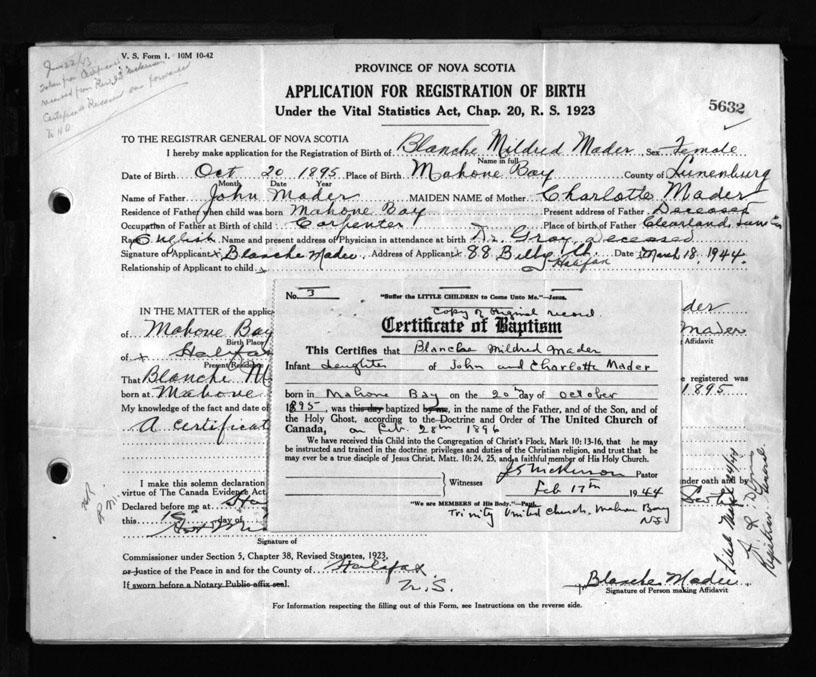 V. S. Form 1. 10M 10-42
PROVINCE OF NOVA SCOTIA
APPLICATION FOR REGISTRATION OF BIRTH
Under the Vital Statistics Act, Chap. 20, R. S. 1923
5632
TO THE REGISTRAR GENERAL OF NOVA SCOTIA
I hereby make application for the Registration of Birth of Blanche Mildred Mader Sex Female
Name in full
Date of Birth Oct 20 1895 Place of Birth Mahone Bay County of Lunenburg
Month Date Year
Name of Father John Mader MAIDEN NAME of Mother Charlotte Mader
Residence of Father when child was born Mahone Bay Present address of Father Deceased
Occupation of Father at Birth of child Carpenter Place of birth of Father Clearland, Lun Co
Race English Name and present address of Physician in attendance at birth Dr. Gray, deceased
Signature of Applicant x Blanche Mader Address of Applicant x 88 Bilby St. Halifax Date March 18, 1944
Relationship of Applicant to child x
IN THE MATTER of the applic
of Mahone Bay
Birth Place
of x Halifax
Present Residence
Mader
Affidavit
That Blanche M
e registered was
born at Mahone
1895
My knowledge of the fact and date of
A certificat
I make some solemn declaration
virtue of The Canada Evidence Act
under oath and by
Declared before me at
this day of
Signature of
No. 3 "Suffer the LITTLE CHILDREN to Come Unto Me."—Jesus.
Copy of original record.
Certificate of Baptism
This Certifies that Blanche Mildred Mader
Infant daughter of John and Charlotte Mader
born in Mahone Bay on the 20th day of October
1895, was this day baptized by me, in the name of the Father, and of the Son, and of
the Holy Ghost, according to the Doctrine and Order of The United Church of
Canada, on Feb. 28th 1896
We have received this Child into the Congregation of Christ's Flock, Mark 10: 13-16, that he may
be instructed and trained in the doctrine, privileges and duties of the Christian religion, and trust that he
may ever be a true disciple of Jesus Christ. Matt. 10: 24, 25, and a faithful member of His Holy Church.
Pastor
Witnesses Feb 17th 1944
"We are MEMBERS of His Body."—Paul.
Trinity United Church, Mahone Bay
NS
Commissioner under Section 5, Chapter 38, Revised Statutes, 1923,
or Justice of the Peace in and for the County of Halifax
N.S.
If sworn before a Notary Public affix seal.
Blanche Mader
Signature of Person making Affidavit
For Information respecting the filling out of this Form, see Instructions on the reverse side.